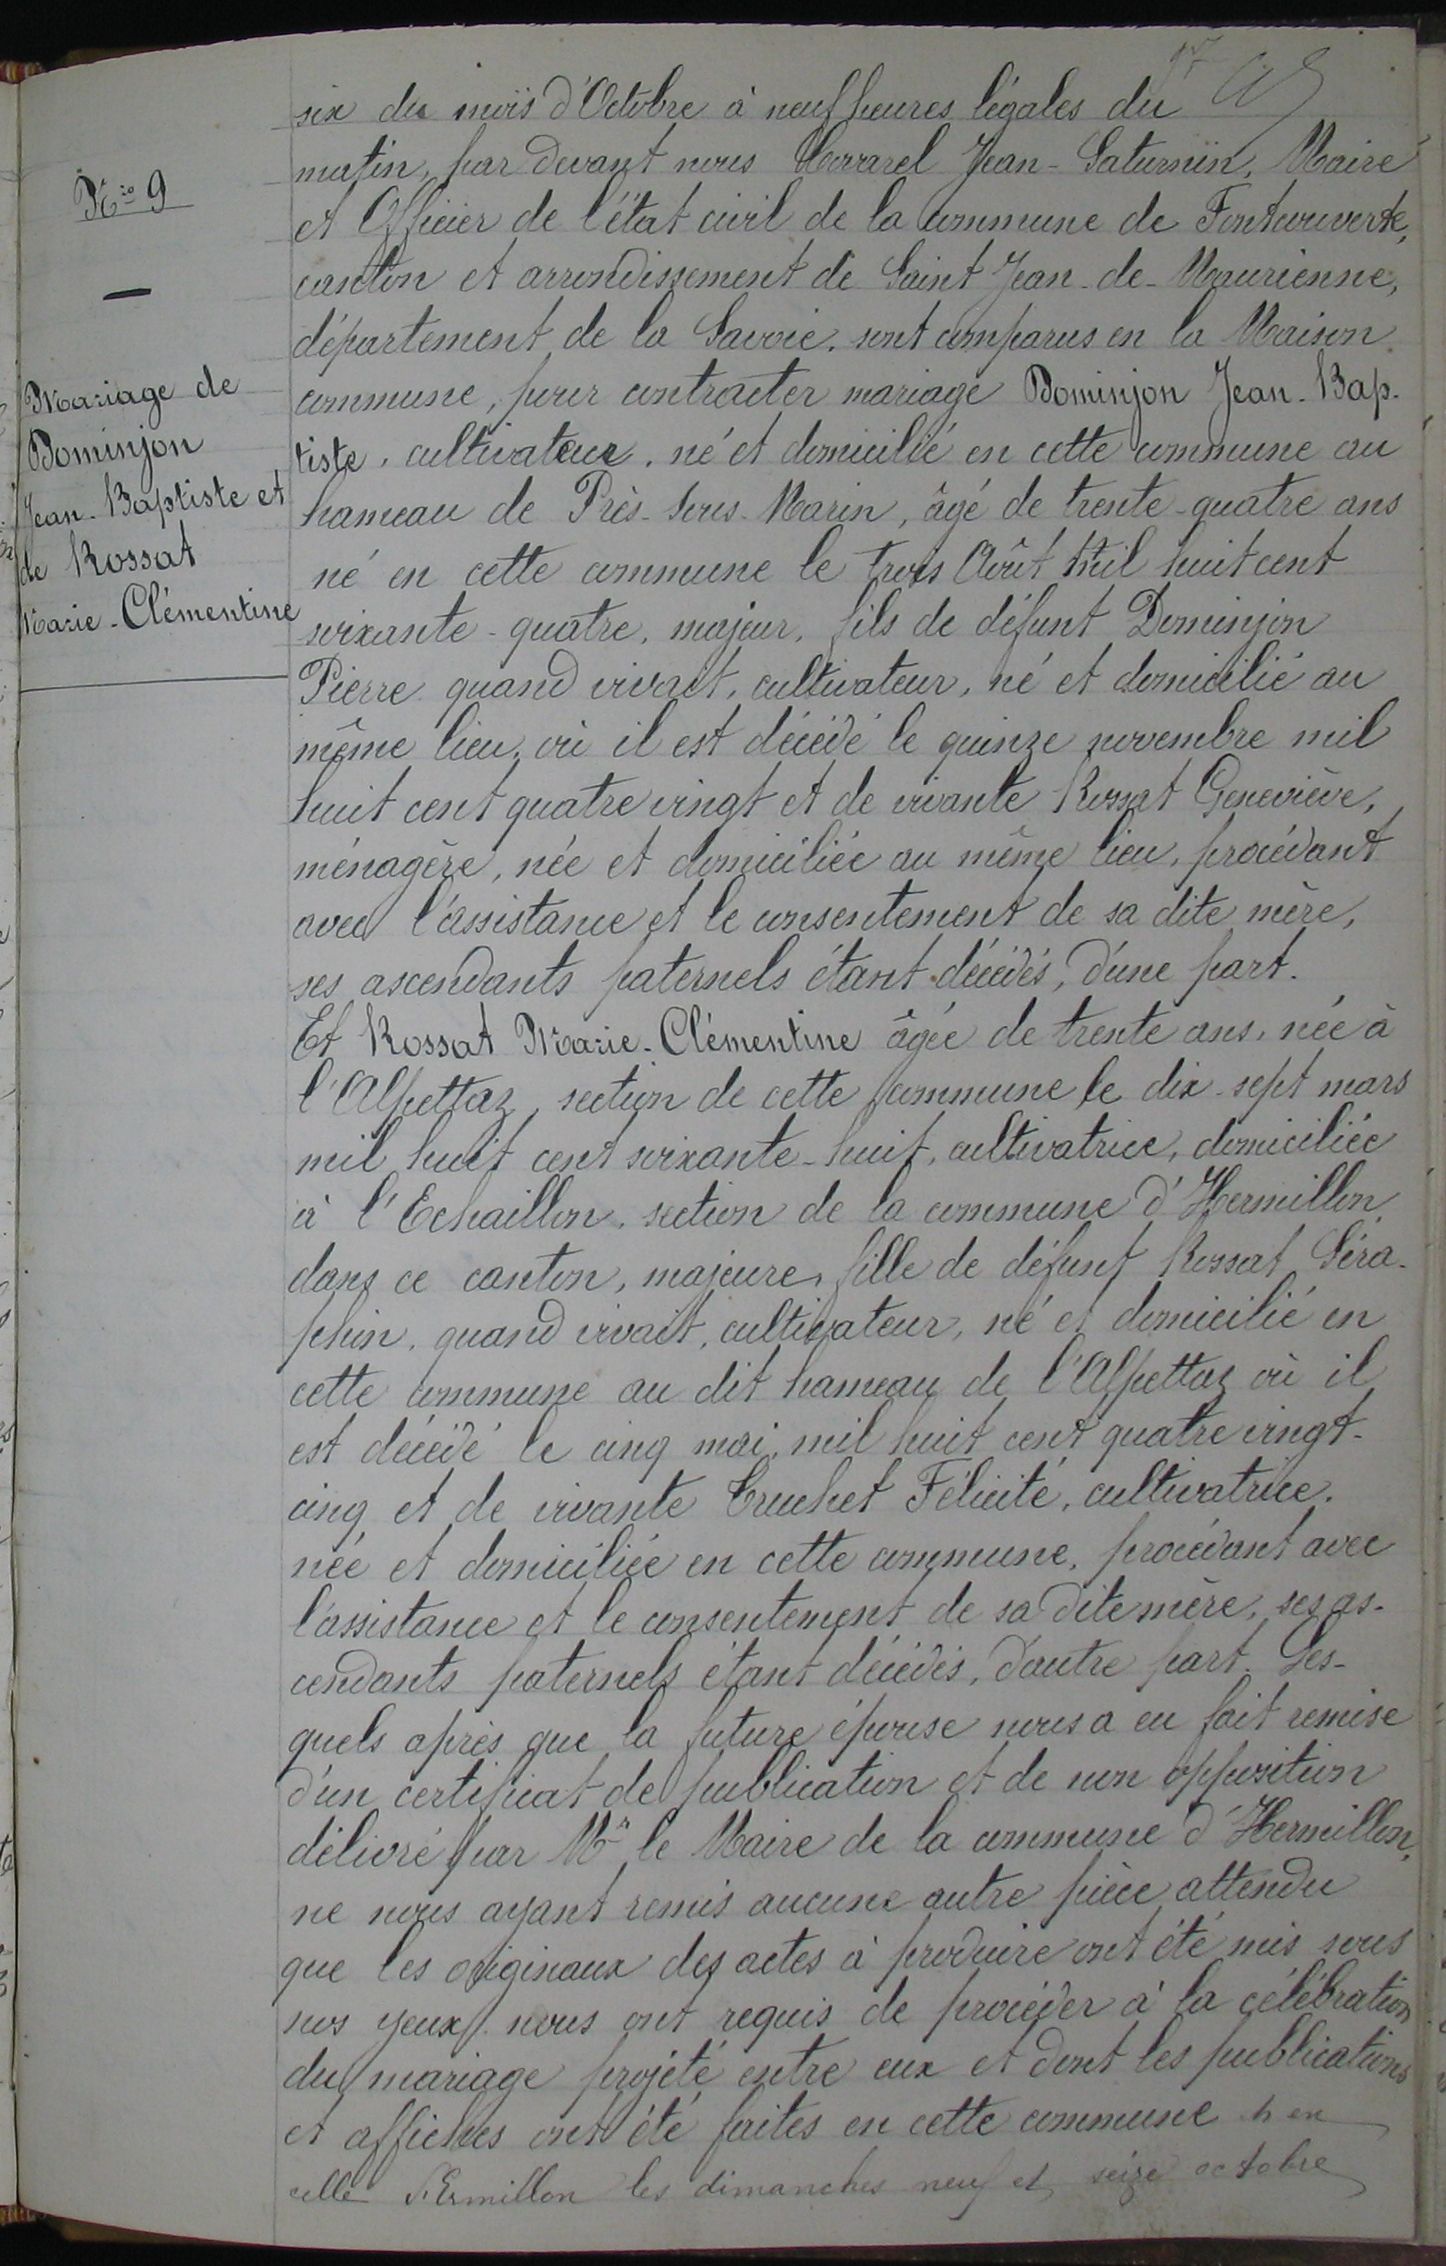 N.ro 9
Mariage de
Dominjon
Jean-Baptiste et
de Rossat
Marie-Clémentine
six du mois d'Octobre à neuf heures légales du
matin, par devant nous Jean-Saturnin, Maire
et Officier de l'état civil de la commune de Fontcouverte,
canton et arrondissement de Saint Jean-de-Maurienne,
département de la Savoie. sont comparus en la Maison
commune, pour contracter mariage Dominjon Jean-Bap-
tiste, cultivateur, né et domicilié en cette commune au
hameau de Près-Sous-Marin, âgé de trente-quatre ans
né en cette commune le trois Août Mil huit cent
soixante-quatre, majeur, fils de défunt Dominjon
Pierre quand vivait, cultivateur, né et domicilié au
même lieu, où il est décédé le quinze novembre mil
huit cent quatre vingt et de vivante Rossat Geneviève,
ménagère, née et domiciliée au même lieu, procédant
avec l'assistance et le consentement de sa dite mère,
ses ascendants paternels étant décédés, d'une part.
Et Rossat Marie-Clémentine âgée de trente ans, née à
l'Alpettaz, section de cette commune le dix-sept mars
mil huit cent soixante-huit, cultivatrice, domiciliée
à l'Echaillon, section de la commune d'Hermillon
dans ce canton, majeure, fille de défunt Rossat Séra-
phin, quand vivait, cultivateur, né et domicilié en
cette commune au dit hameau de l'Alpettaz où il
est décédé le cinq mai mil huit cent quatre vingt-
cinq et de vivante Truchet Félicité, cultivatrice.
née et domiciliée en cette commune, procédant avec
l'assistance et le consentement de sa dite mère, ses as-
cendants paternels étant décédés, d'autre part. Les-
quels après que la future épouse nous a eu fait remise
d'un certificat de publication et de non opposition
délivré par Mr le Maire de la commune d'Hermillon,
ne nous ayant remis aucune autre pièce attendu
que les originaux des actes à produire ont été mis sous
nos yeux, nous ont requis de procéder à la célébration
du mariage projeté entre eux et dont les publications
et affiches ont été faites en cette commune et en
celle d'Ermillon les dimanches neuf et seize octobre